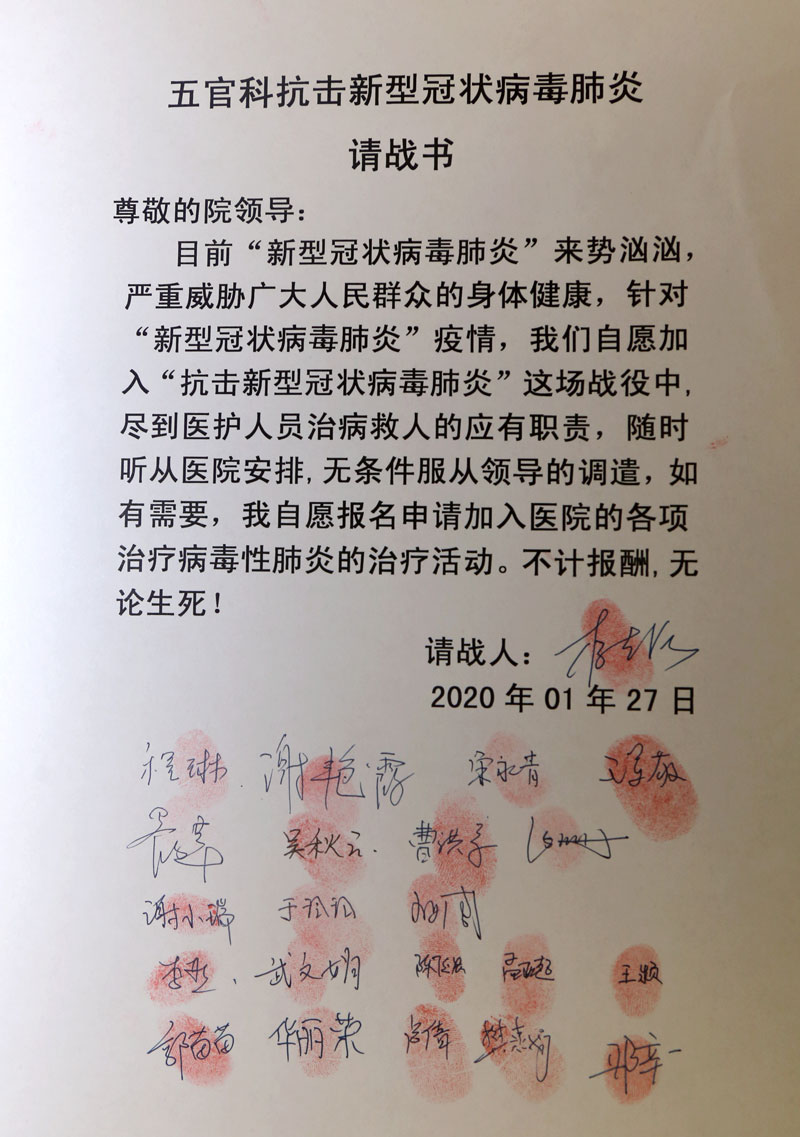 五官科抗击新型冠状病毒肺炎
请战书
尊敬的院领导：
目前“新型冠状病毒肺炎”来势汹汹，
严重威胁广大人民群众的身体健康，针对
“新型冠状病毒肺炎”疫情，我们自愿加
入“抗击新型冠状病毒肺炎”这场战役中，
尽到医护人员治病救人的应有职责，随时
听从医院安排，无条件服从领导的调遣，如
有需要，我自愿报名申请加入医院的各项
治疗病毒性肺炎的治疗活动。不计报酬，无
论生死！
请战人：
2020年01年27日
程琳 谢艳霞 宋永青
吴秋云
谢小瑞
武文娟 王颖
郭苗苗 华丽荣